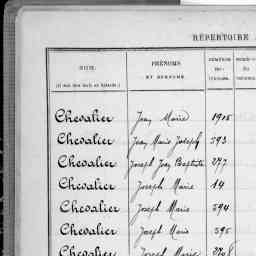 RÉPERTOIRE
NOM.
PRÉNOMS
ET SURNOMS.
Chevalier Jean Marie 1905
Chevalier Jean Marie Joseph 393
Chevalier Joseph Jean Baptiste 277
Chevalier Joseph Marie 14
Chevalier Joseph Marie 394
Chevalier Joseph Marie 395
Chevalier Joseph Marie